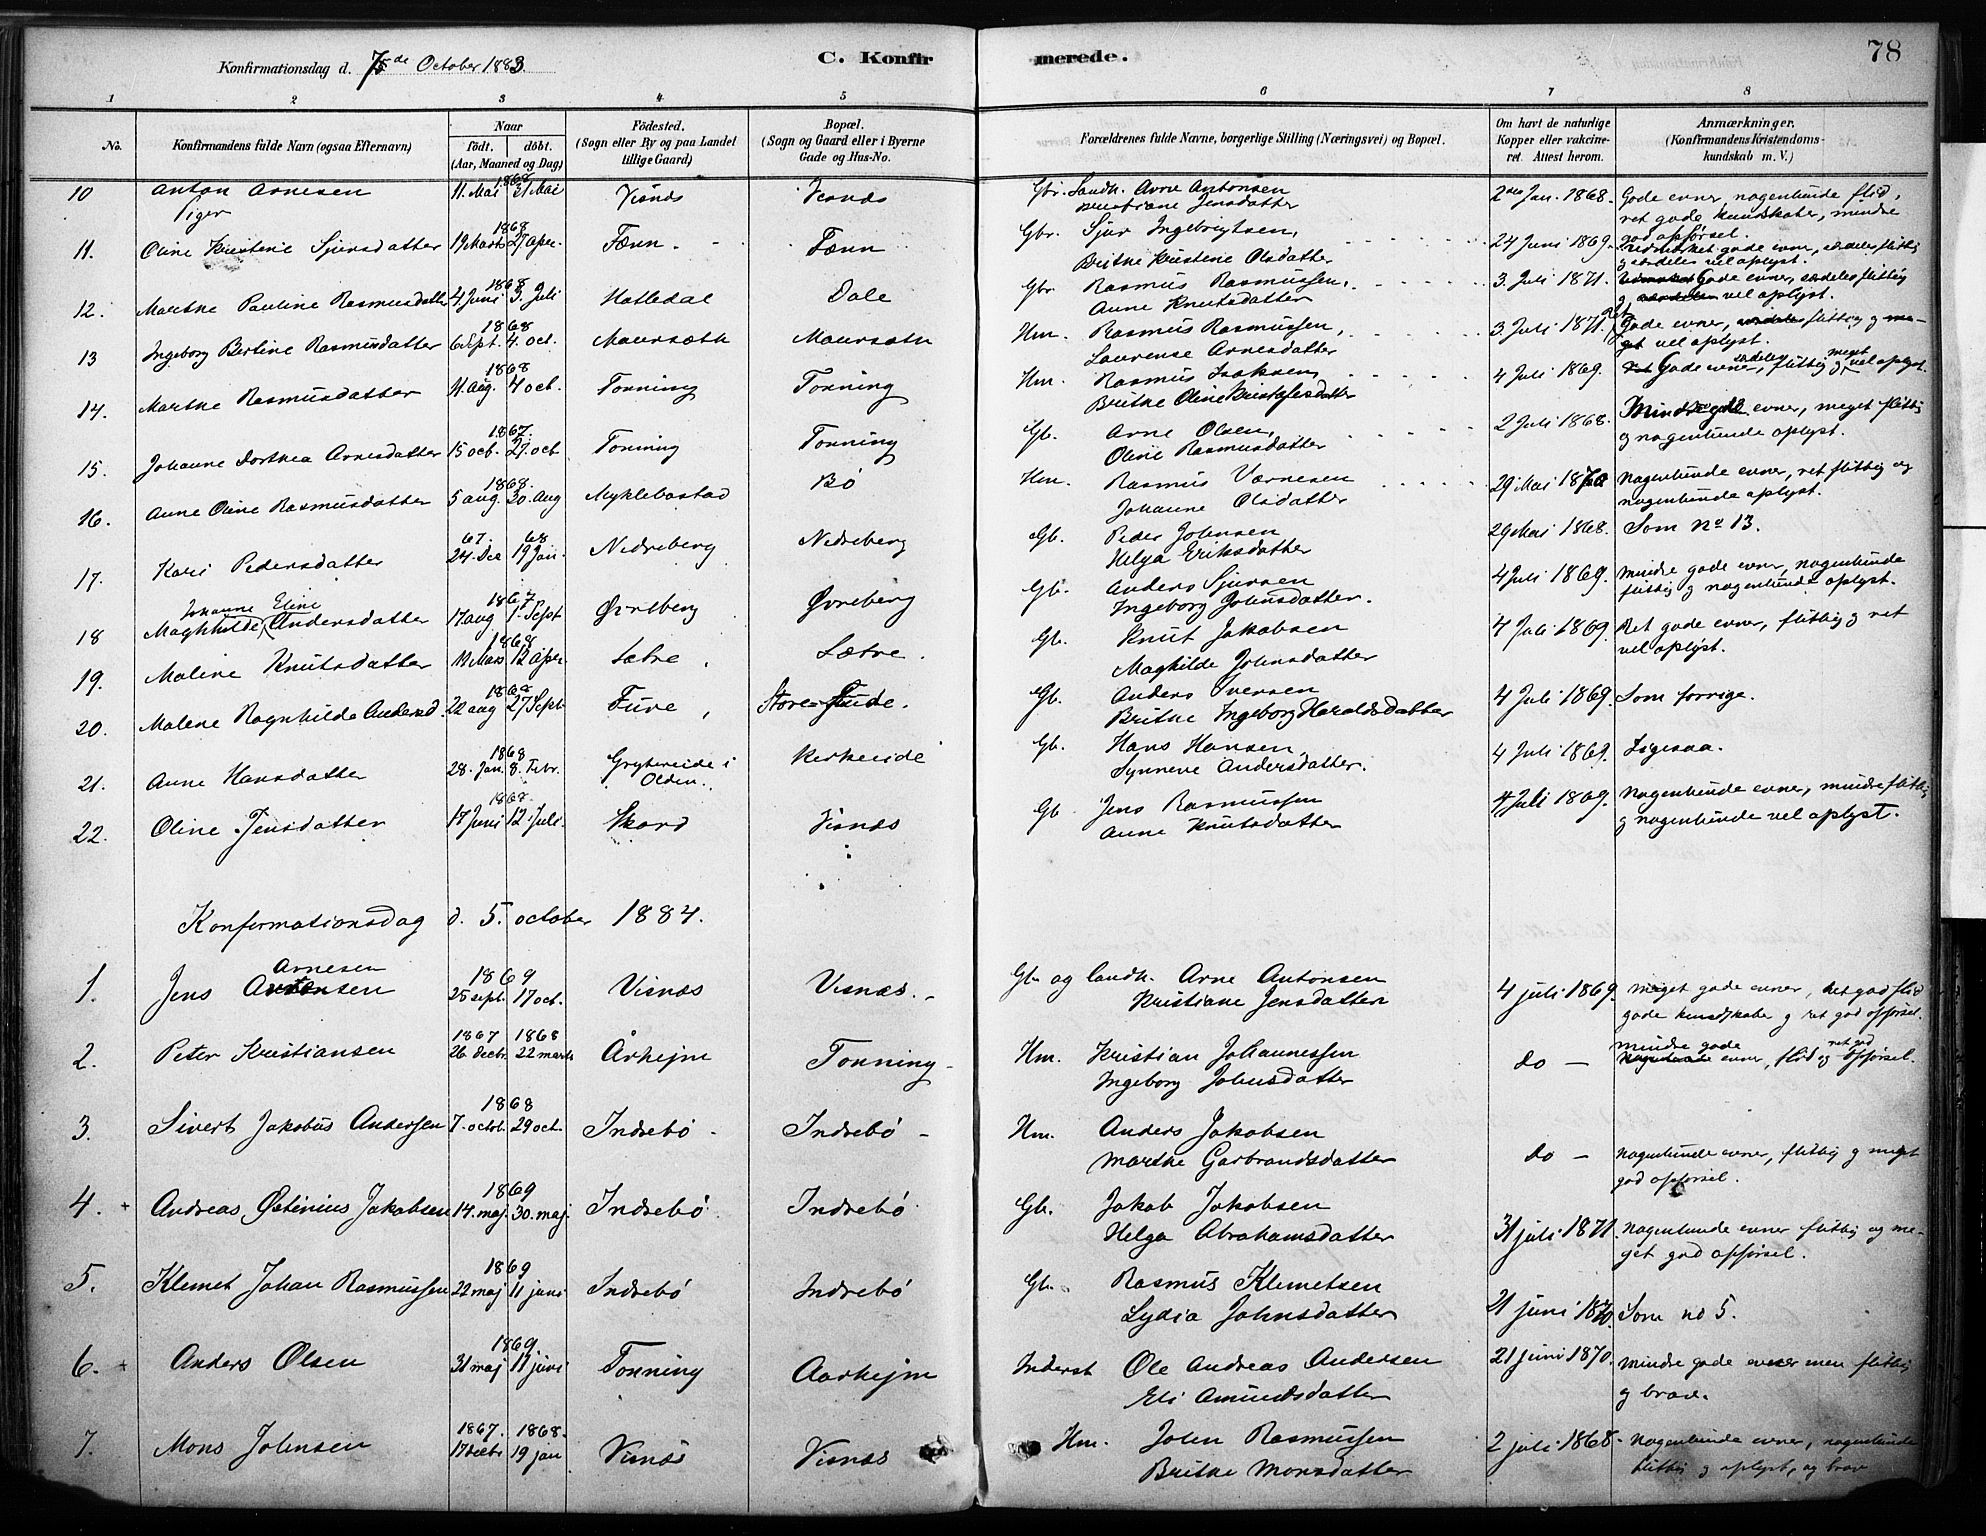 Konfirmationsdag d. 7de October 1883.
C. Konfirmerede.
78
1 2 3 4 5 6 7 8
No.
Konfirmandens fulde Navn (ogsaa Efternavn)
Naar
født. døbt.
(Aar, Maaned og Dag)
Fødested.
(Sogn eller By og paa Landet
tillige Gaard)
Bopæl.
(Sogn og Gaard eller i Byerne
Gade og Hus-No.
Forældrenes fulde Navne, borgerlige Stilling (Næringsvei) og Bopæl.
Om havt de naturlige
Kopper eller vakcine-
ret. Attest herom.
Anmærkninger.
(Konfirmandens Kristendoms-
kundskab m. V.)
1868
10 Anton Arnesen 11. Mai 31 Mai Visnes Visnes Gbr. Landh. Arne Antonsen 2den Jan. 1868. Gode evner, nogenlunde flid,
Kristiane Jensdatter ret gode kundskaber, mindre
god opførsel.
Piger
1868
11. Oline Kristine Sjursdatter 19 Marts 27 Apr. Fænn Fænn Gbr. Sjur Ingebrigtsen, 24 Juni 1869. udmærket gode evner, særdeles flittig
Brithe Kristene Olsdatter og særdeles vel oplyst.
1868
12. Marthe Pauline Rasmusdatter 4 Juni 3. Juli Hatledal Dale Gbr Rasmus Rasmussen, 3. Juli 1871. Gode evner, særdeles flittig
Anne Knutsdatter og særdeles vel oplyst.
1868
13 Ingeborg Bertine Rasmusdatter 6 Sept. 4. oct. Maurseth Maurseth Hm. Rasmus Rasmussen, 3 Juli 1871. Ret Gode evner, særdeles flittig og me-
Laurense Arnesdatter get vel oplyst.
1868
14. Marthe Rasmusdatter 11. Aug. 4 oct. Tonning Tonning Hm. Rasmus Isaksen, 4 Juli 1869. Gode evner, særdeles flittig og meget vel oplyst.
Brithe Oline Kristofersdatter
1867.
15. Johanne Dorthea Arnesdatter 15 oct. 27. oct Tonning Tonning Gb. Arne Olsen, 2 Juli 1868. Mindre gode evner, meget flittig
Oline Rasmusdatter og nogenlunde oplyst.
1868.
16. Anne Oline Rasmusdatter 5 aug. 30. Aug Myklebostad Bø Hm. Rasmus Værnesen 29 Mai 1870 Nogenlunde evner, ret flittig og
Johanne Olsdatter nogenlunde oplyst.
67. 68
17. Kari Pedersdatter 24. Dec 19 Jan. Nedreberg Nedreberg Gb. Peder Johnsen 29 Mai 1868. Som No 13.
Helga Eriksdatter
Johanne Eline 1867
18 Maghhilde Andersdatter 17 aug 1. Sept Øvreberg Øvreberg Gb. Anders Sjursen 4 Juli 1869. Mindre gode evner, nogenlunde
Ingeborg Johnsdatter. flittig og nogenlunde oplyst.
1868
19. Maline Knutsdatter 11 Mars 12 Apr. Sætre Sætre. Gb. Knut Jakobsen 4 Juli 1869. Ret gode evner, flittig og ret
Maghilde Johnsdatter vel oplyst.
1868
20. Malene Ragnhilde Andersd. 22 aug 27 Sept Fure Gb. Anders Iversen 4 Juli 1869. Som forrige.
Brithe Ingeborg Haraldsdatter
1868
21. Anne Hansdatter 28. Jan. 8. Febr. Grytereide i Kirkeeide Gb. Hans Hansen 4 Juli 1869. Ligesaa.
Olden. Synneve Andersdatter.
1868.
22. Oline Jensdatter 17 Juni 12 Juli. Skard Visnes Gb Jens Rasmussen 4 Juli 1869. Nogenlunde evner, mindre flittig
Anne Knutsdatter og nogenlunde vel oplyst.
Konfirmationsdag d. 5. october 1884.
Arnesen 1869
1. Jens Antonsen 25 sept. 17 oct. Visnæs Visnæs. Gb. og landh. Arne Antonsen 4 juli 1869. Meget gode evner, ret god flid
Kristiane Jensdatter gode kundskabe og ret god opførsel.
1867 1868 mindre gode ret god
2. Peter Kristiansen 26 decbr. 22 marts Århejm Tonning Hm. Kristian Johannessen do — evner, flid og opførsel.
Ingeborg Johnsdatter
1868
3. Sivert Jakobus Andersen 7. octob. 29 oct. Indrebø Indrebø Hm. Anders Jakobsen do — nogenlunde evner, flittig og meget
Marthe Garbrandsdatter god opførsel.
1869
4. + Andreas Østinius Jakobsen 14. maj. 30. maj. Indrebø Indrebø Gb. Jakob Jakobsen 31 juli 1871. nogenlunde evner flittig og me-
Helga Abrahamsdatter get god opførsel.
1869
5. Klemet Johan Rasmussen 22 maj 11 juni Indrebø Indrebø Gb. Rasmus Klemetsen 21 juni 1870. Som no 5.
Lydia Johnsdatter
1869.
6. + Anders Olsen 31 maj 11 juni Tonning Aarhejm Inderst Ole Andreas Andersen 21 juni 1870. mindre gode evner men flittig
Eli Amundsdatter og brav.
1867. 1868.
7. Mons Johnsen 17 decbr 19 jan Visnes Visnes Hm. John Rasmussen 2 juli 1868. Nogenlunde evner, nogenlunde
Brithe Monsdatter flittig og oplyst, og brav